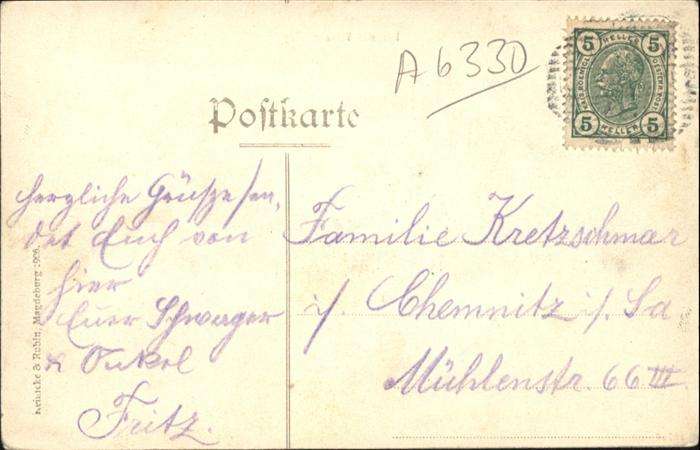 A 6330
5 HELLER 5
5 HELLER 5
Postkarte
Herzliche Grüsze sen,
det Euch von
hier
Euer Schwager
& Onkel
Fritz.
Familie Kretzschmar
i/. Chemnitz i/. Sa
Mühlenstr. 66 III
Reinicke & Rubin, Magdeburg 1906.